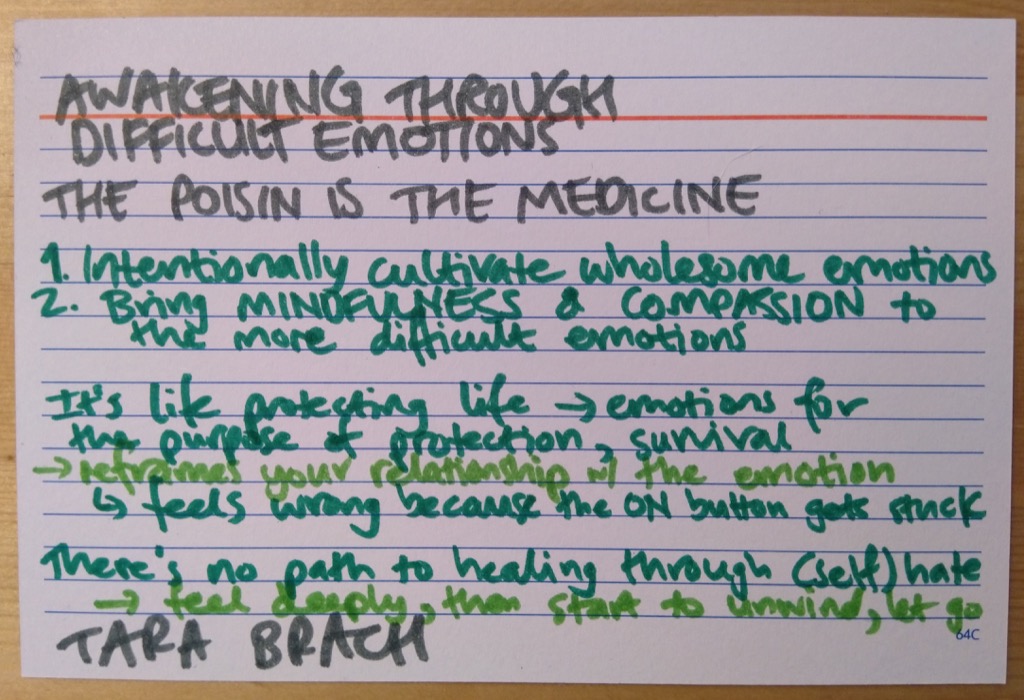 AWAKENING THROUGH
DIFFICULT EMOTIONS
THE POISIN IS THE MEDICINE
1. Intentionally cultivate wholesome emotions
2. Bring MINDFULNESS & COMPASSION to
the more difficult emotions
It's life protecting life → emotions for
the purpose of protection, survival
→ reframes your relationship w/ the emotion
↳ feels wrong because the ON button gets stuck
There's no path to healing through (self) hate
→ feel deeply, then start to unwind, let go
64C
TARA BRACH